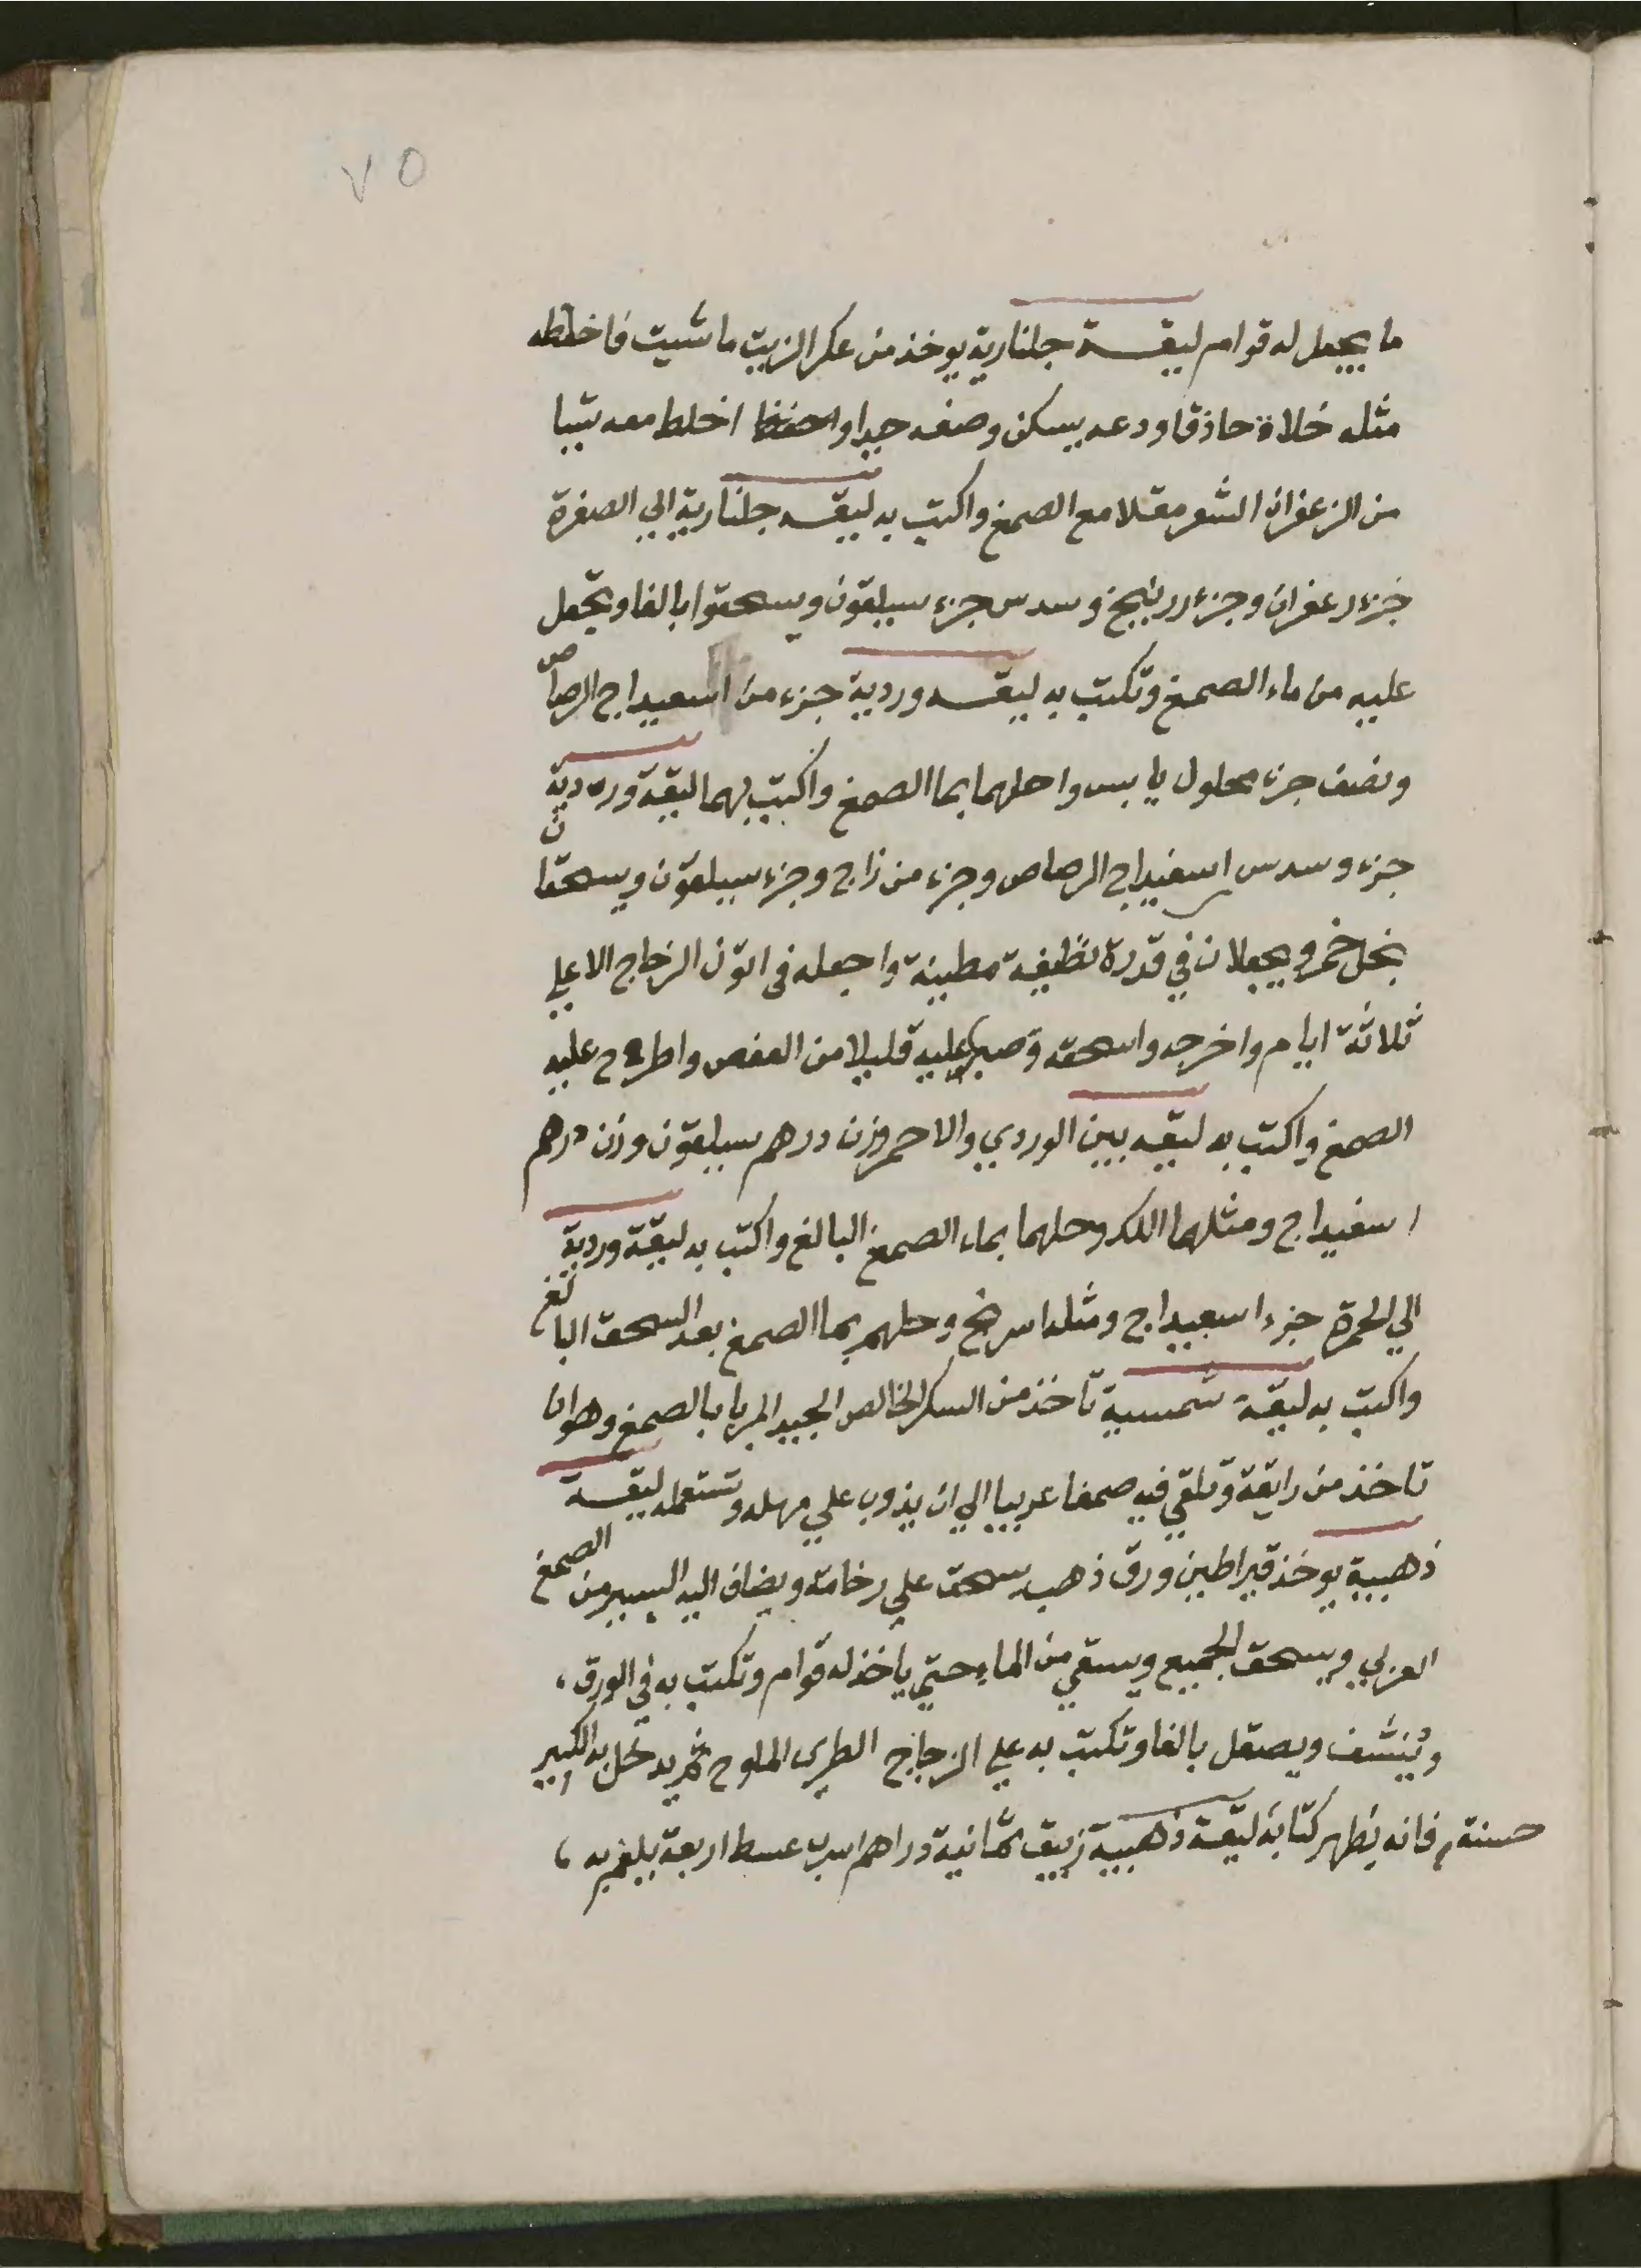 ٧٥
ما يجعل له قوام ليقة جلنارية يوخذ من عكر الزيت ما شيت فاخلطه
مثله خلا حاذقا ودعه يسكن وصفه جيدا واحفظ اخلط معه شيا
من الزعفران الشعر مقلا مع الصمغ واكتب به ليقه جلنارية الي الصفرة
جزء زعفران وجزء زرنيخ وسدس جزء سيلقون ويسحقوا بالغا وتجعل
عليه من ماء الصمغ وتكتب به ليقه وردية جزء من اسعيداج الرصاص
ونصف جزء محلول يابس واحلهما بما الصمغ واكتب بهما ليقة وردية
جزء وسدس اسفيداج الرصاص وجزء من زاج وجزء سيلقون ويسحقان
بخل خمر ويجعلان في قدرة نظيفة مطينة واجعله فى اتون الزجاج الاعلي
ثلاثة ايام واخرجه واسحقه وصير عليه قليلا من العفص واطرح عليه
الصمغ واكتب به ليقه بين الوردي والاحمر وزن درهم سيلقون وزن درهم
اسفيداج ومثلهما اللك وحلهما بماء الصمغ البالغ واكتب به ليقة وردية
الي الحمرة جزء اسعبيداج ومثله اسرنج وحلهم بما الصمغ بعد السحق البالغ
واكتب به ليقة شمسية تاخذ من السكر الخالص الجيد المربا بالصمغ وهو ان
تاخذ من رايقة وتلقي فيه صمغا عربيا الي ان يذوب علي مهله وتستعمله ليقة
ذهبية يوخذ قيراطين ورق ذهب يسحق علي رخامة ويضاف اليه اليسير من الصمغ
العربي ويسحق الجميع ويسقي من الماء حتي ياخذ له قوام وتكتب به في الورق،
وينشف ويصقل بالغا وتكتب به علي الزجاج الطرى الملوح ثم يدخل به الكير
حسنة فانه يظهر كتابة ليقة ذهبية زيبق ثمانية دراهم اسرب عسط اربعة يلغم به،